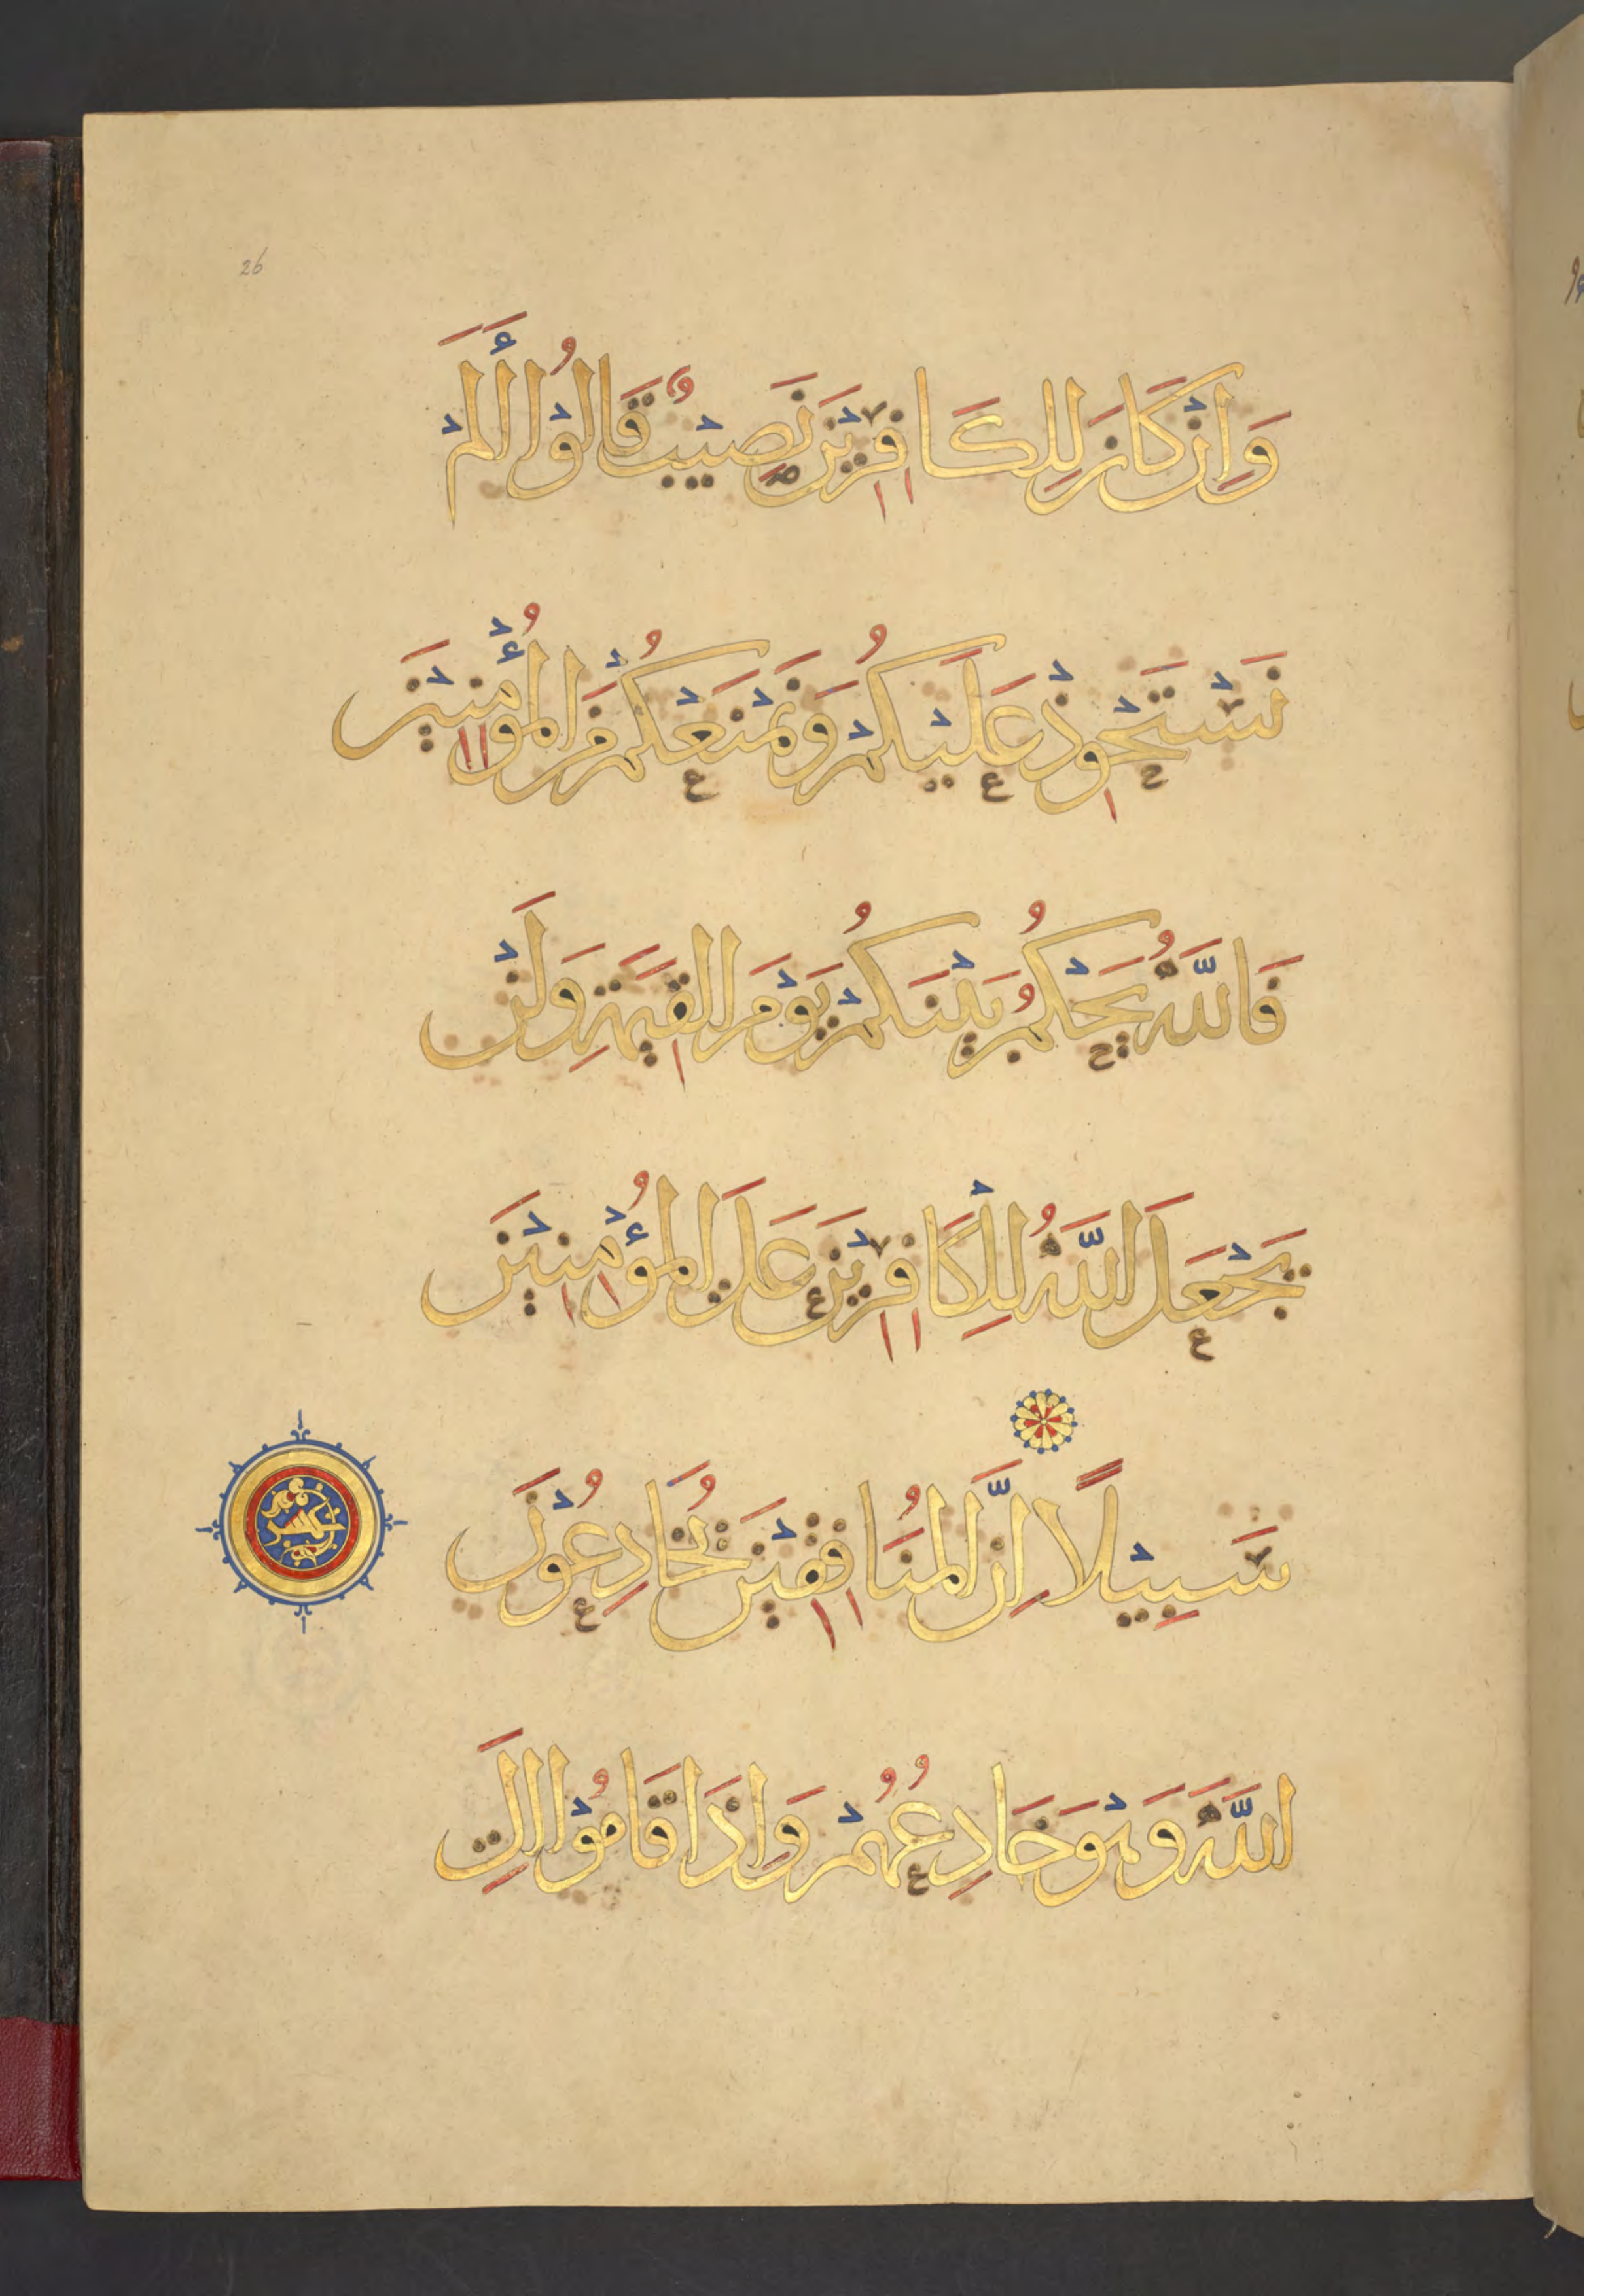 26
وَاِنْ كَانَ لِلْكَافِرِيْنَ نَصِيْبٌ قَالُوْا أَلَمْ
نَسْتَحْوِذْ عَلَيْكُمْ وَنَمْنَعْكُمْ مِنَ الْمُؤْمِنِيْنَ
فَاللَّهُ يَحْكُمُ بَيْنَكُمْ يَوْمَ الْقِيَمَةِ وَلَنْ
يَجْعَلَ اللَّهُ لِلْكَافِرِيْنَ عَلَى الْمُؤْمِنِيْنَ
سَبِيْلًا اِنَّ الْمُنَافِقِيْنَ يُخَادِعُوْنَ
اللَّهَ وَهْوَ خَادِعُهُمْ وَاِذَا قَامُوْا اِلَى